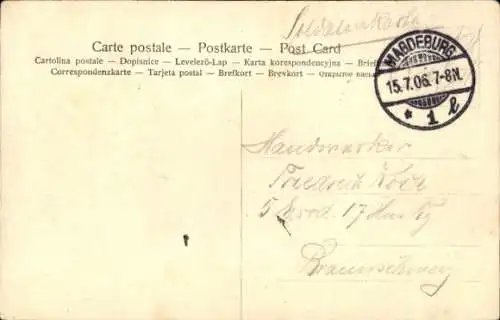 Soldatenkarte
Carte postale — Postkarte — Post Card
Cartolina postale — Dopisnice — Levelező-Lap — Karta korespondencyjna — Brief
Correspondenzkarte — Tarjeta postal — Brefkort — Brevkort — Открытое
MAGDEBURG
15.7.06. 7-8N.
* 1 l
Friedrich
5 17 Hus
Braunschweig